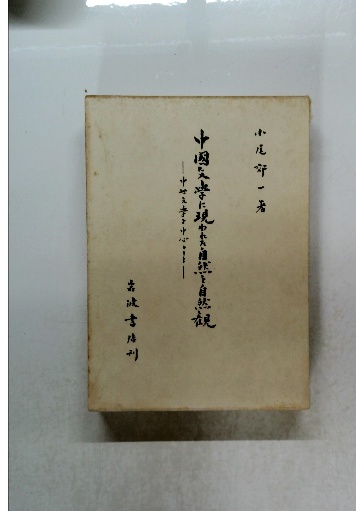 小尾郊一著
中國文学に現われた自然と自然観
―中世文学を中心として―
岩波書店刊